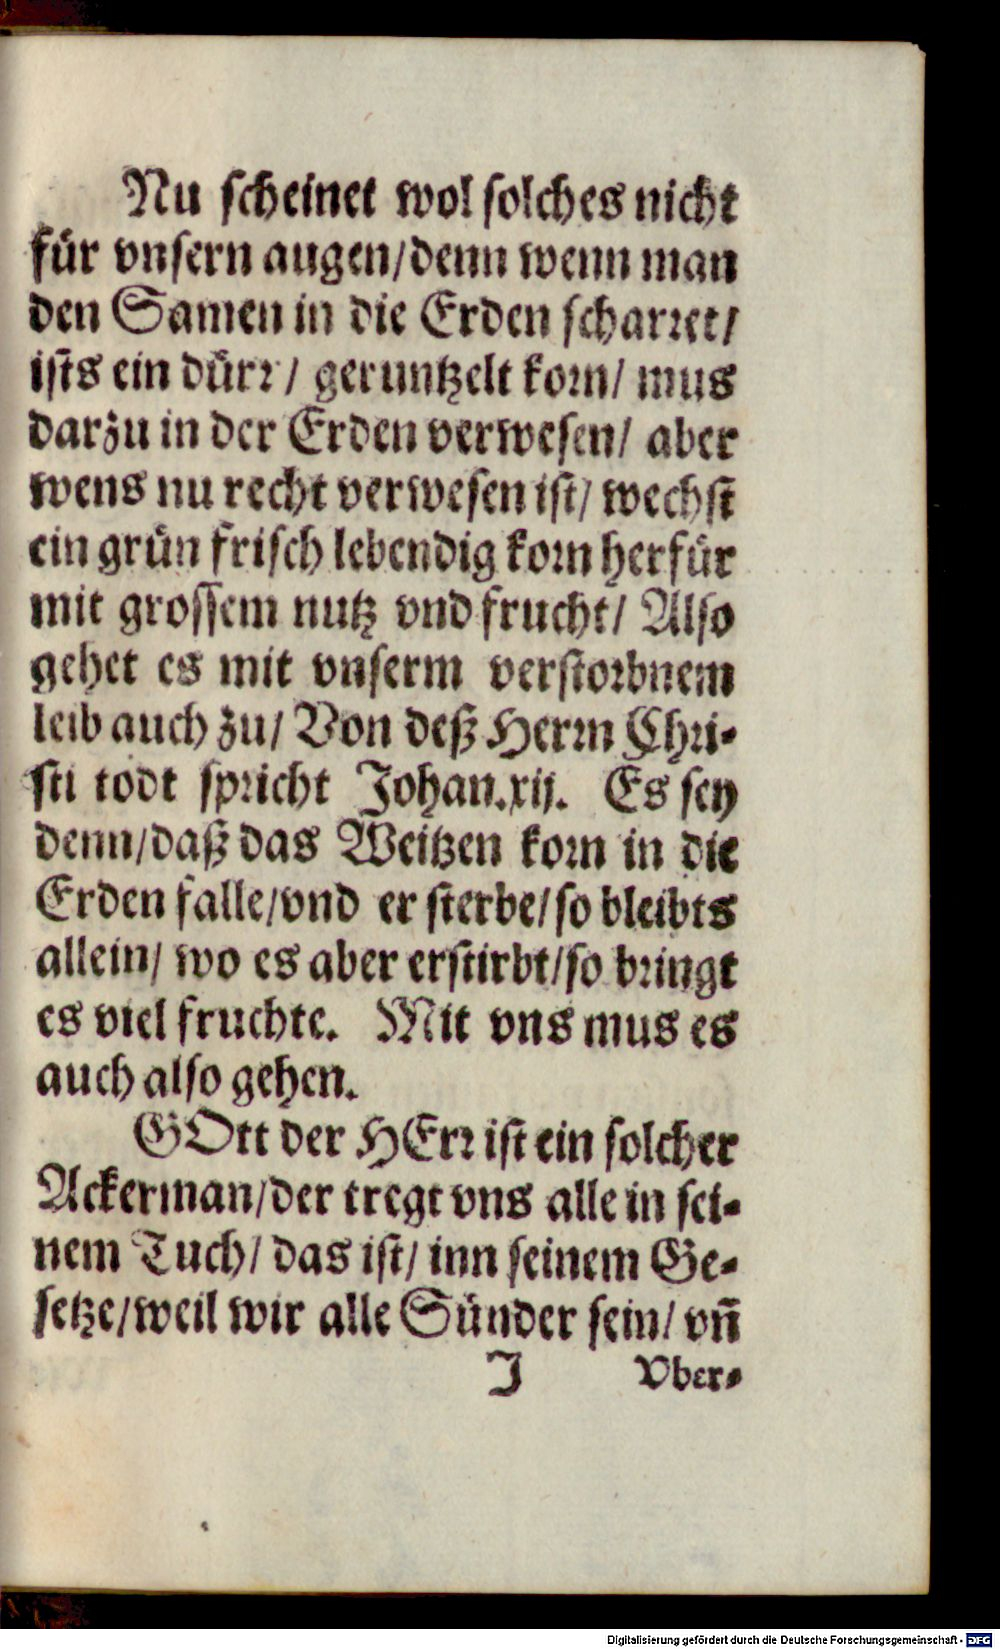 Nu scheinet wol solches nicht
für vnsern augen/denn wenn man
den Samen in die Erden scharret/
ists ein dürr/ geruntzelt korn/ mus
darzu in der Erden verwesen/ aber
wens nu recht verwesen ist/ wechst
ein grün frisch lebendig korn herfür
mit grossem nutz vnd frucht/ Also
gehet es mit vnserm verstorbnem
leib auch zu/ Von deß Herrn Chri-
sti todt spricht Johan.xij. Es sey
denn/daß das Weitzen korn in die
Erden falle/vnd er sterbe/so bleibts
allein/ wo es aber erstirbt/so bringt
es viel fruchte. Mit vns mus es
auch also gehen.
GOtt der HErr ist ein solcher
Ackerman/der tregt vns alle in sei-
nem Tuch/ das ist/ inn seinem Ge-
setze/weil wir alle Sünder sein/ vñ
J Vber-
Digitalisierung gefördert durch die Deutsche Forschungsgemeinschaft - DFG